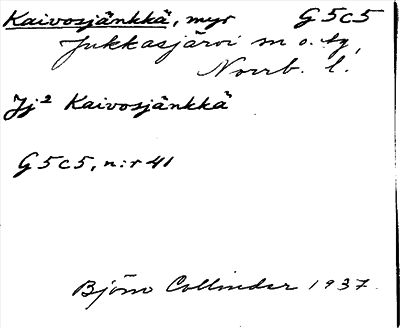 Kaivosjänkkä, myr G5c5
Jukkasjärvi sn o. tg,
Norrb. l.
Jj² Kaivosjänkkä
G5c5, n:r 41
Björn Collinder 1937.